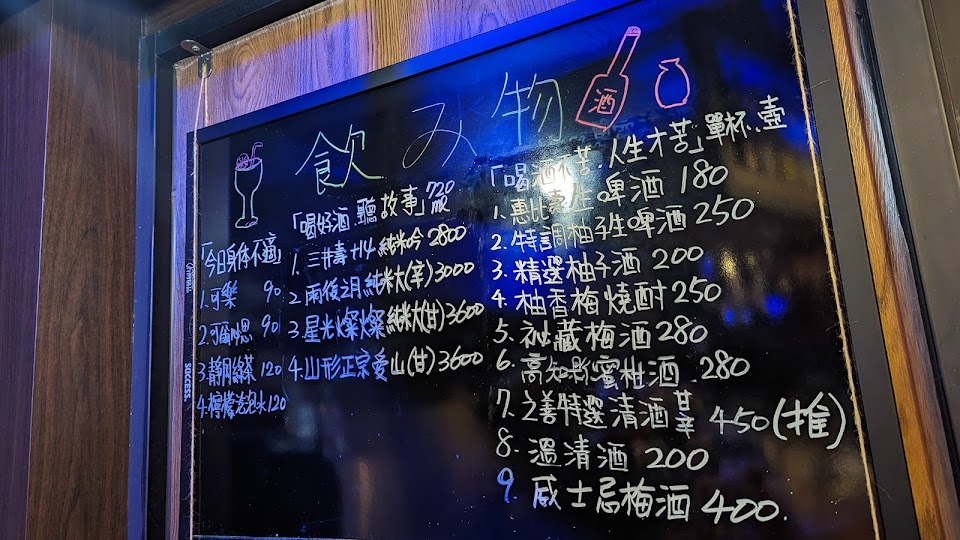 飲み物
酒
「今日身体不適」
1.可樂 90
2.可爾必思 90
3.靜岡綠茶 120
4.檸檬氣泡水 120
SUCCESS.
「喝好酒.聽故事」720ml
1.三井壽 +14 純米吟 2800
2.雨後之月 純米大(辛) 3000
3.星光燦燦 純米大(甘) 3600
4.山形正宗愛山(甘) 3600
「喝酒不苦.人生才苦」單杯.壺
1.惠比壽生啤酒 180
2.特調柚子生啤酒 250
3.精選柚子酒 200
4.柚香梅燒酎 250
5.祕藏梅酒 280
6.高知縣蜜柑酒 280
7.之善特選清酒 甘辛 450(推)
8.溫清酒 200
9.威士忌梅酒 400.